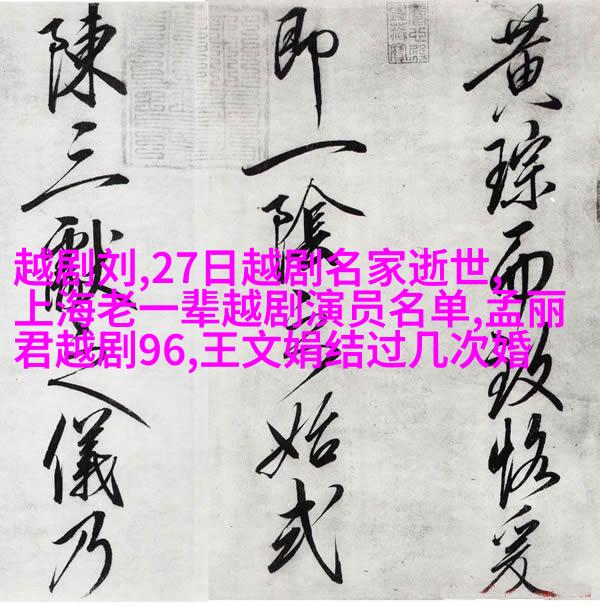 黄琮而致恪爰
即一陰始式
陳三獻之儀乃
越剧刘,27日越剧名家逝世,
上海老一辈越剧演员名单,孟丽
君越剧96,王文娟结过几次婚